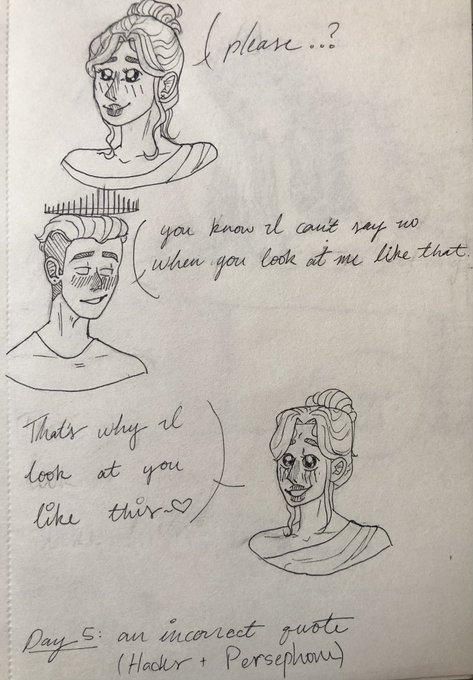 please...?
you know I can't say no
when you look at me like that.
That's why I
look at you
like this~♡
Day 5: an incorrect quote
(Hades + Persephone)